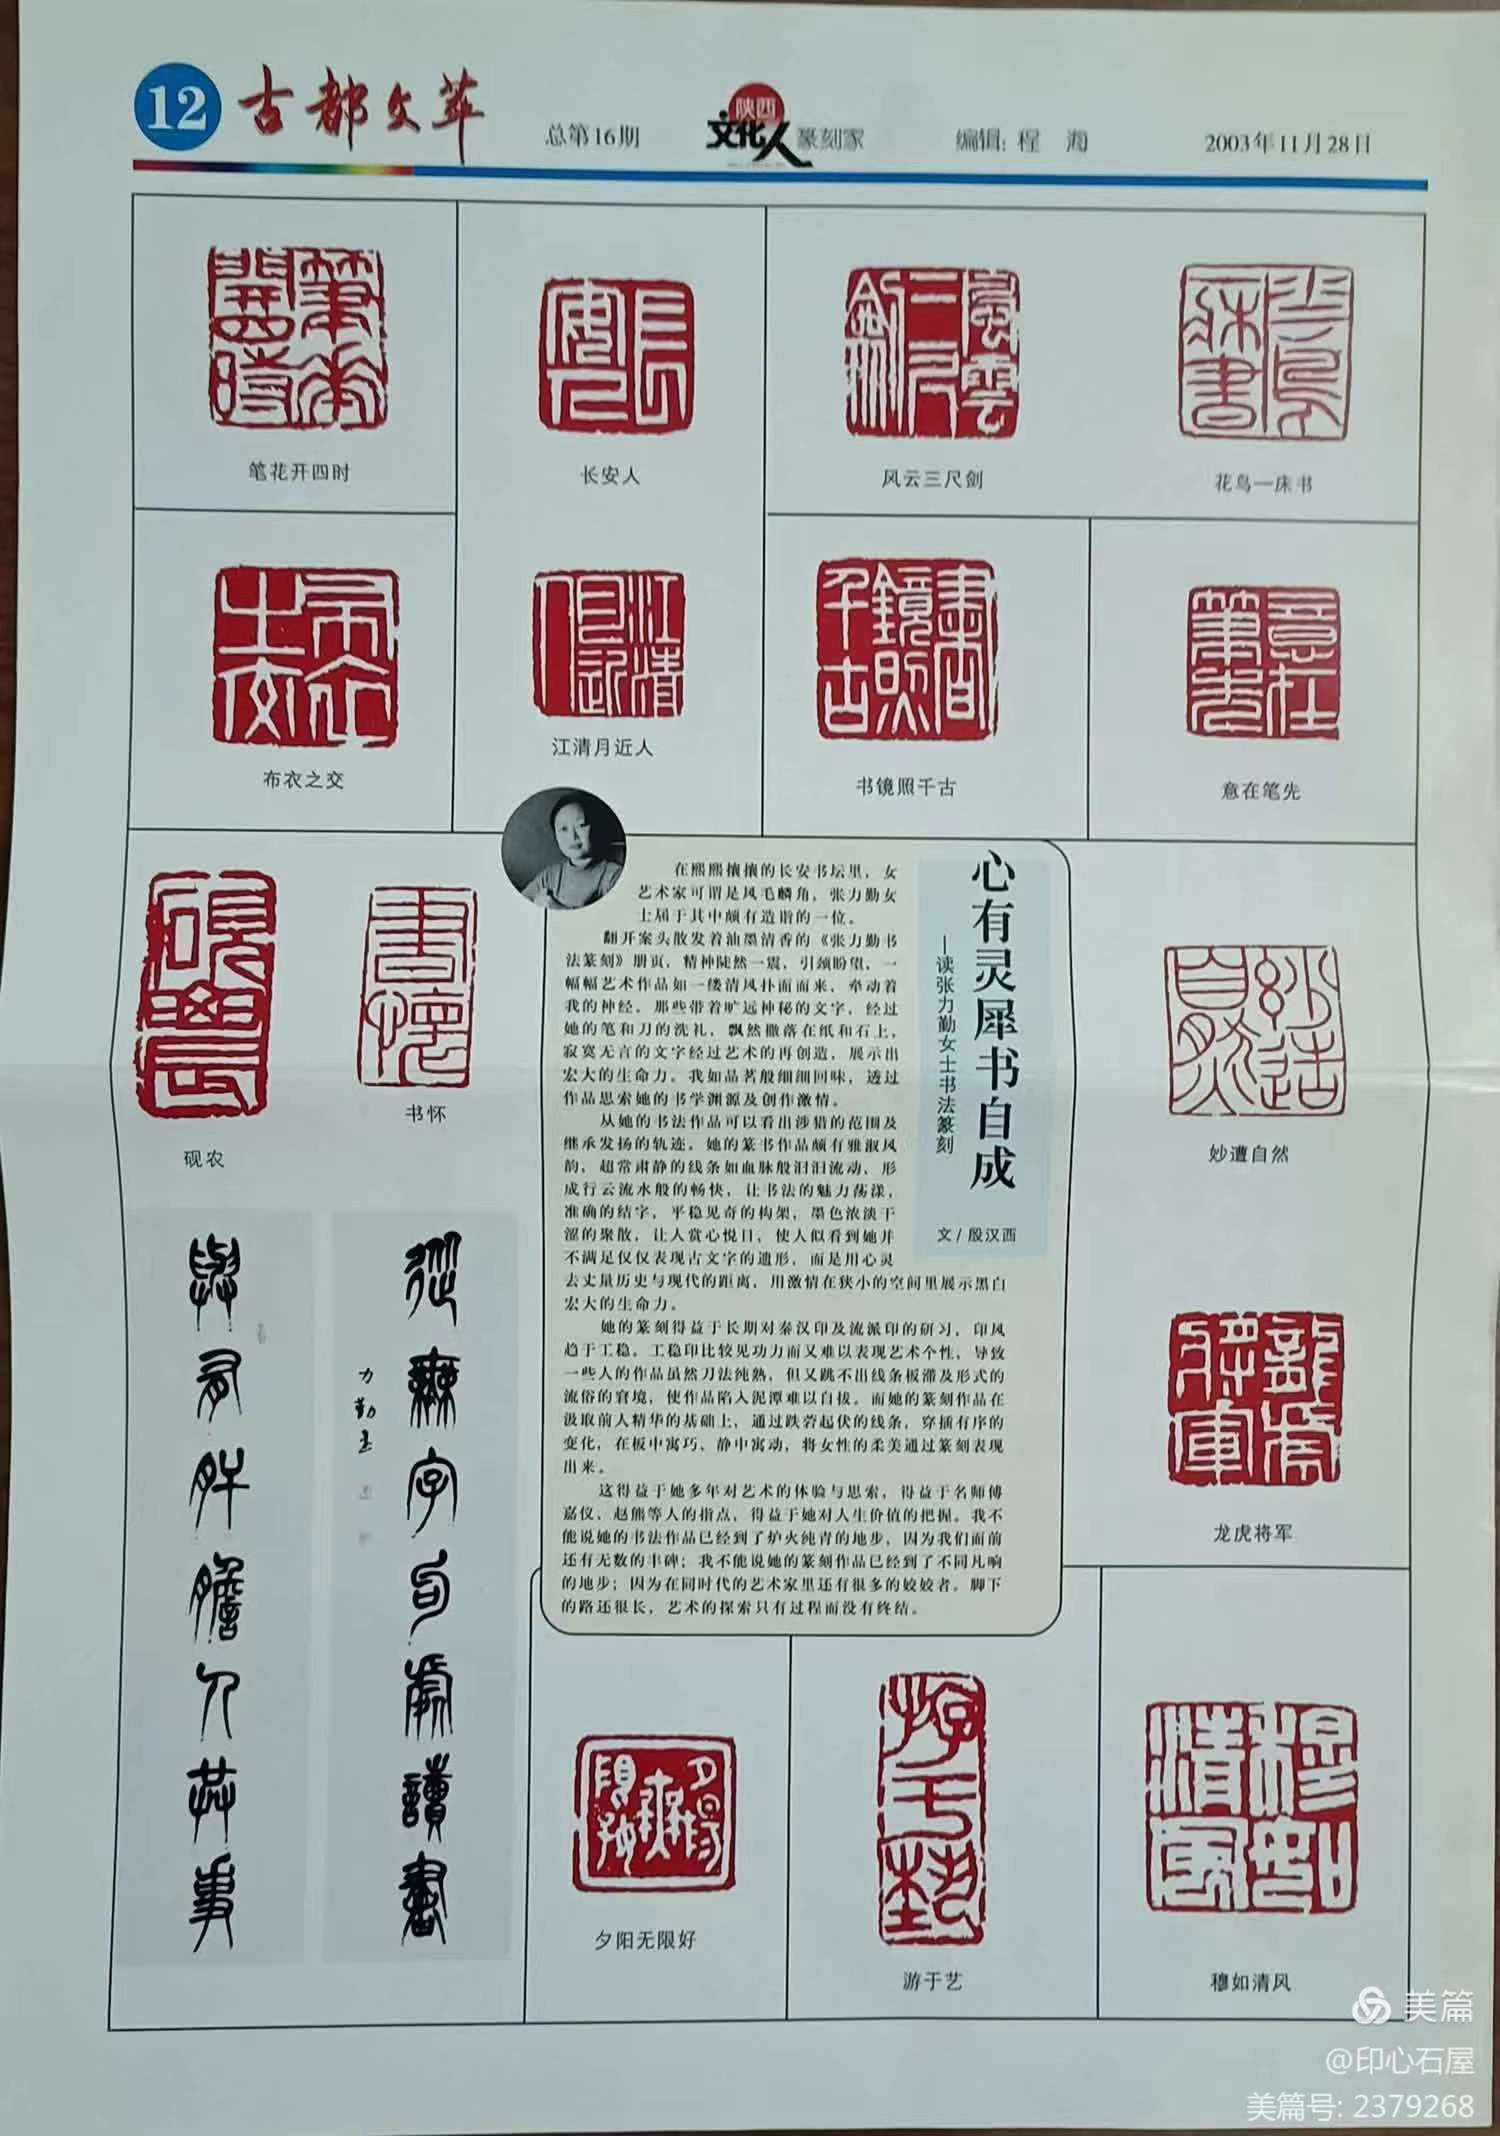 12 古都文萃
总第16期
陕西
文化人 篆刻家
编辑: 程
2003年11月28日
笔花开四时
长安人
风云三尺剑
花鸟一床书
布衣之交
江清月近人
书镜照千古
意在笔先
砚农
书怀
心有灵犀书自成
—读张力勤女士书法篆刻
文/殷汉西
在熙熙攘攘的长安书坛里，女
艺术家可谓是凤毛麟角，张力勤女
士属于其中颇有造诣的一位。
翻开案头散发着油墨清香的《张力勤书
法篆刻》册页，精神陡然一震，引颈盼望，一
幅幅艺术作品如一缕清风扑面而来，牵动着
我的神经。那些带着旷远神秘的文字，经过
她的笔和刀的洗礼，飘然撒落在纸和石上，
寂寞无言的文字经过艺术的再创造，展示出
宏大的生命力。我如品茗般细细回味，透过
作品思索她的书学渊源及创作激情。
从她的书法作品可以看出涉猎的范围及
继承发扬的轨迹。她的篆书作品颇有雅淑风
韵，超常肃静的线条如血脉般汩汩流动，形
成行云流水般的畅快，让书法的魅力荡漾，
准确的结字，平稳见奇的构架，墨色浓淡干
涩的聚散，让人赏心悦目，使人似看到她并
不满足仅仅表现古文字的遗形，而是用心灵
去丈量历史与现代的距离，用激情在狭小的空间里展示黑白
宏大的生命力。
她的篆刻得益于长期对秦汉印及流派印的研习，印风
趋于工稳。工稳印比较见功力而又难以表现艺术个性，导致
一些人的作品虽然刀法纯熟，但又跳不出线条板滞及形式的
流俗的窘境，使作品陷入泥潭难以自拔。而她的篆刻作品在
汲取前人精华的基础上，通过跌宕起伏的线条，穿插有序的
变化，在板中寓巧、静中寓动，将女性的柔美通过篆刻表现
出来。
这得益于她多年对艺术的体验与思索，得益于名师傅
嘉仪、赵熊等人的指点，得益于她对人生价值的把握。我不
能说她的书法作品已经到了炉火纯青的地步，因为我们面前
还有无数的丰碑；我不能说她的篆刻作品已经到了不同凡响
的地步；因为在同时代的艺术家里还有很多的姣姣者。脚下
的路还很长，艺术的探索只有过程而没有终结。
妙遭自然
龙虎将军
從無字句處讀書
力勤書
與有肝膽人共事
夕阳无限好
游于艺
穆如清风
美篇
@印心石屋
美篇号: 2379268